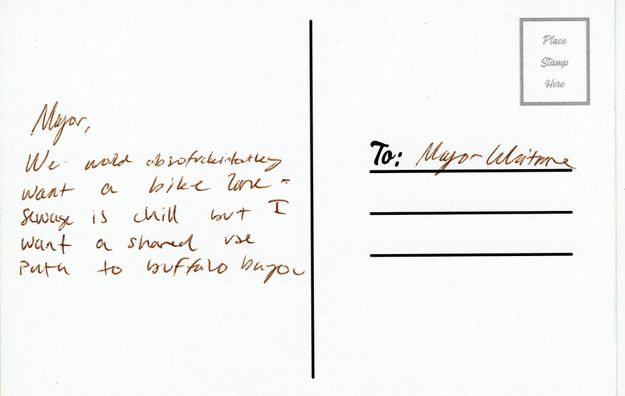 Place
Stamp
Here
Mayor,
We would absofuckinlutley
want a bike lane -
Sewage is chill but I
want a shared use
Path to buffalo bayou
To: Mayor Whitmire